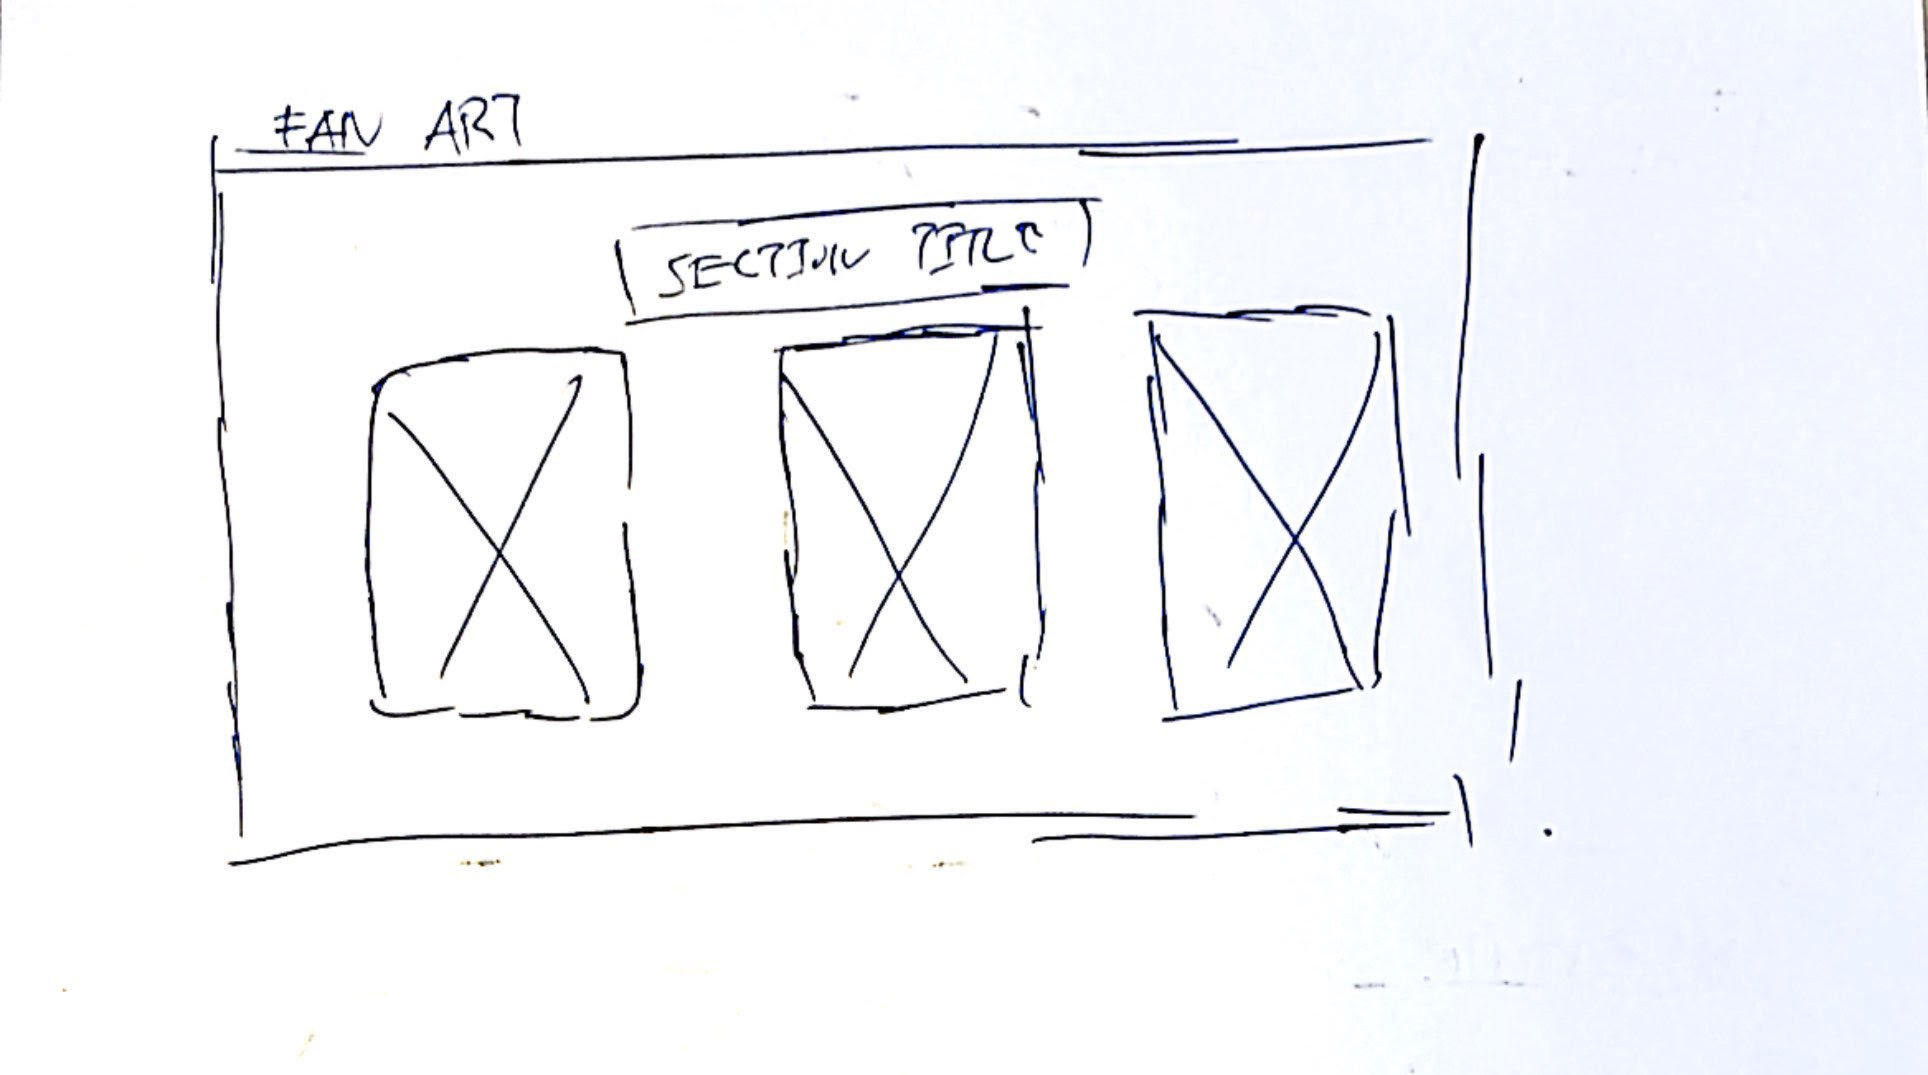 FAN ART
SECTION TITLE